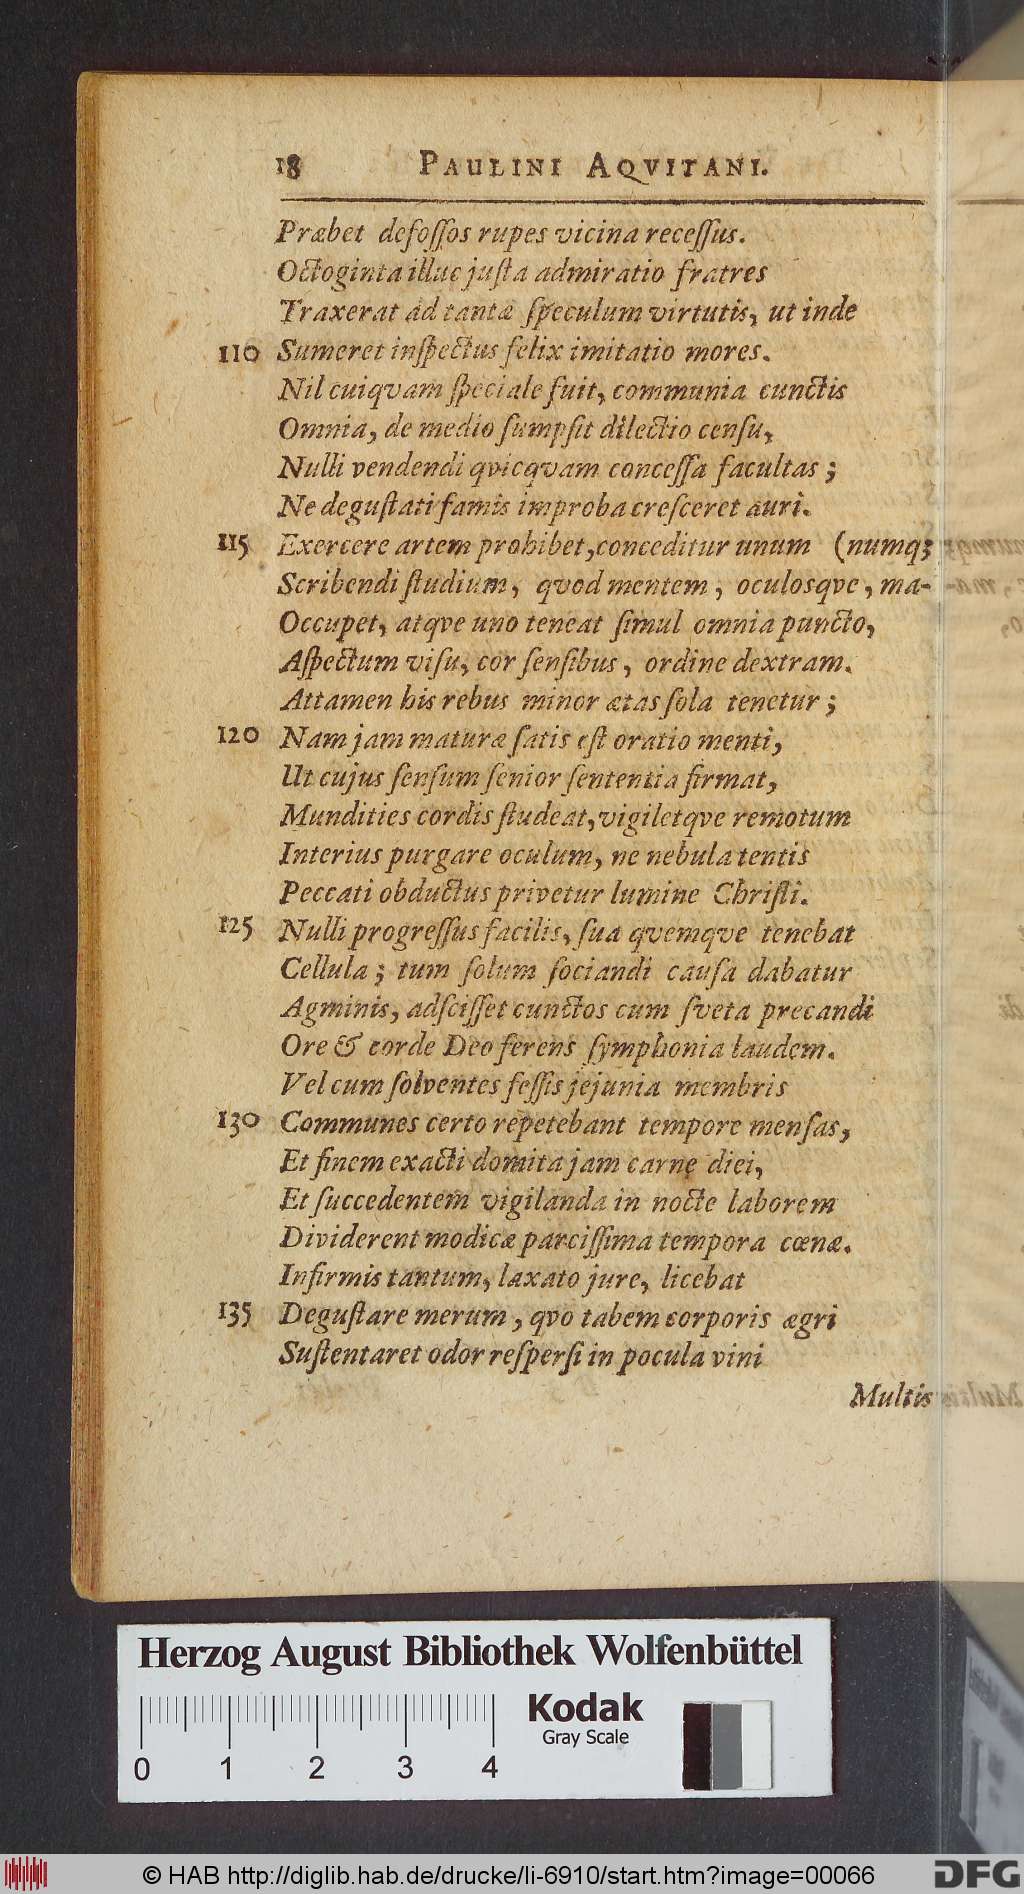 18 PAULINI AQVITANI.
Præbet defoſſos rupes vicina receſſus.
Octoginta illuc juſta admiratio fratres
Traxerat ad tantæ ſpeculum virtutis, ut inde
110 Sumeret inſpectus felix imitatio mores.
Nil cuiqvam ſpeciale fuit, communia cunctis
Omnia, de medio ſumpſit dilectio cenſu,
Nulli vendendi qvicqvam conceſſa facultas;
Ne deguſtati famis improba creſceret auri.
115 Exercere artem prohibet, conceditur unum (numq;
Scribendi ſtudium, qvod mentem, oculosqve, ma-
Occupet, atqve uno teneat ſimul omnia puncto,
Aſpectum viſu, cor ſenſibus, ordine dextram.
Attamen his rebus minor ætas ſola tenetur;
120 Nam jam maturæ ſatis eſt oratio menti,
Ut cujus ſenſum ſenior ſententia firmat,
Mundities cordis ſtudeat, vigiletqve remotum
Interius purgare oculum, ne nebula tentis
Peccati obductus privetur lumine Chriſti.
125 Nulli progreſſus facilis, ſua qvemqve tenebat
Cellula; tum ſolum ſociandi cauſa dabatur
Agminis, adſciſſet cunctos cum ſveta precandi
Ore & corde Deo ferens ſymphonia laudem.
Vel cum ſolventes feſſis jejunia membris
130 Communes certo repetebant tempore menſas,
Et finem exacti domita jam carne diei,
Et ſuccedentem vigilanda in nocte laborem
Dividerent modicæ parciſſima tempora cœnæ.
Infirmis tantum, laxato jure, licebat
135 Deguſtare merum, qvo tabem corporis ægri
Suſtentaret odor reſperſi in pocula vini
Multis
Herzog August Bibliothek Wolfenbüttel
Kodak
Gray Scale
0 1 2 3 4
© HAB http://diglib.hab.de/drucke/li-6910/start.htm?image=00066
DFG